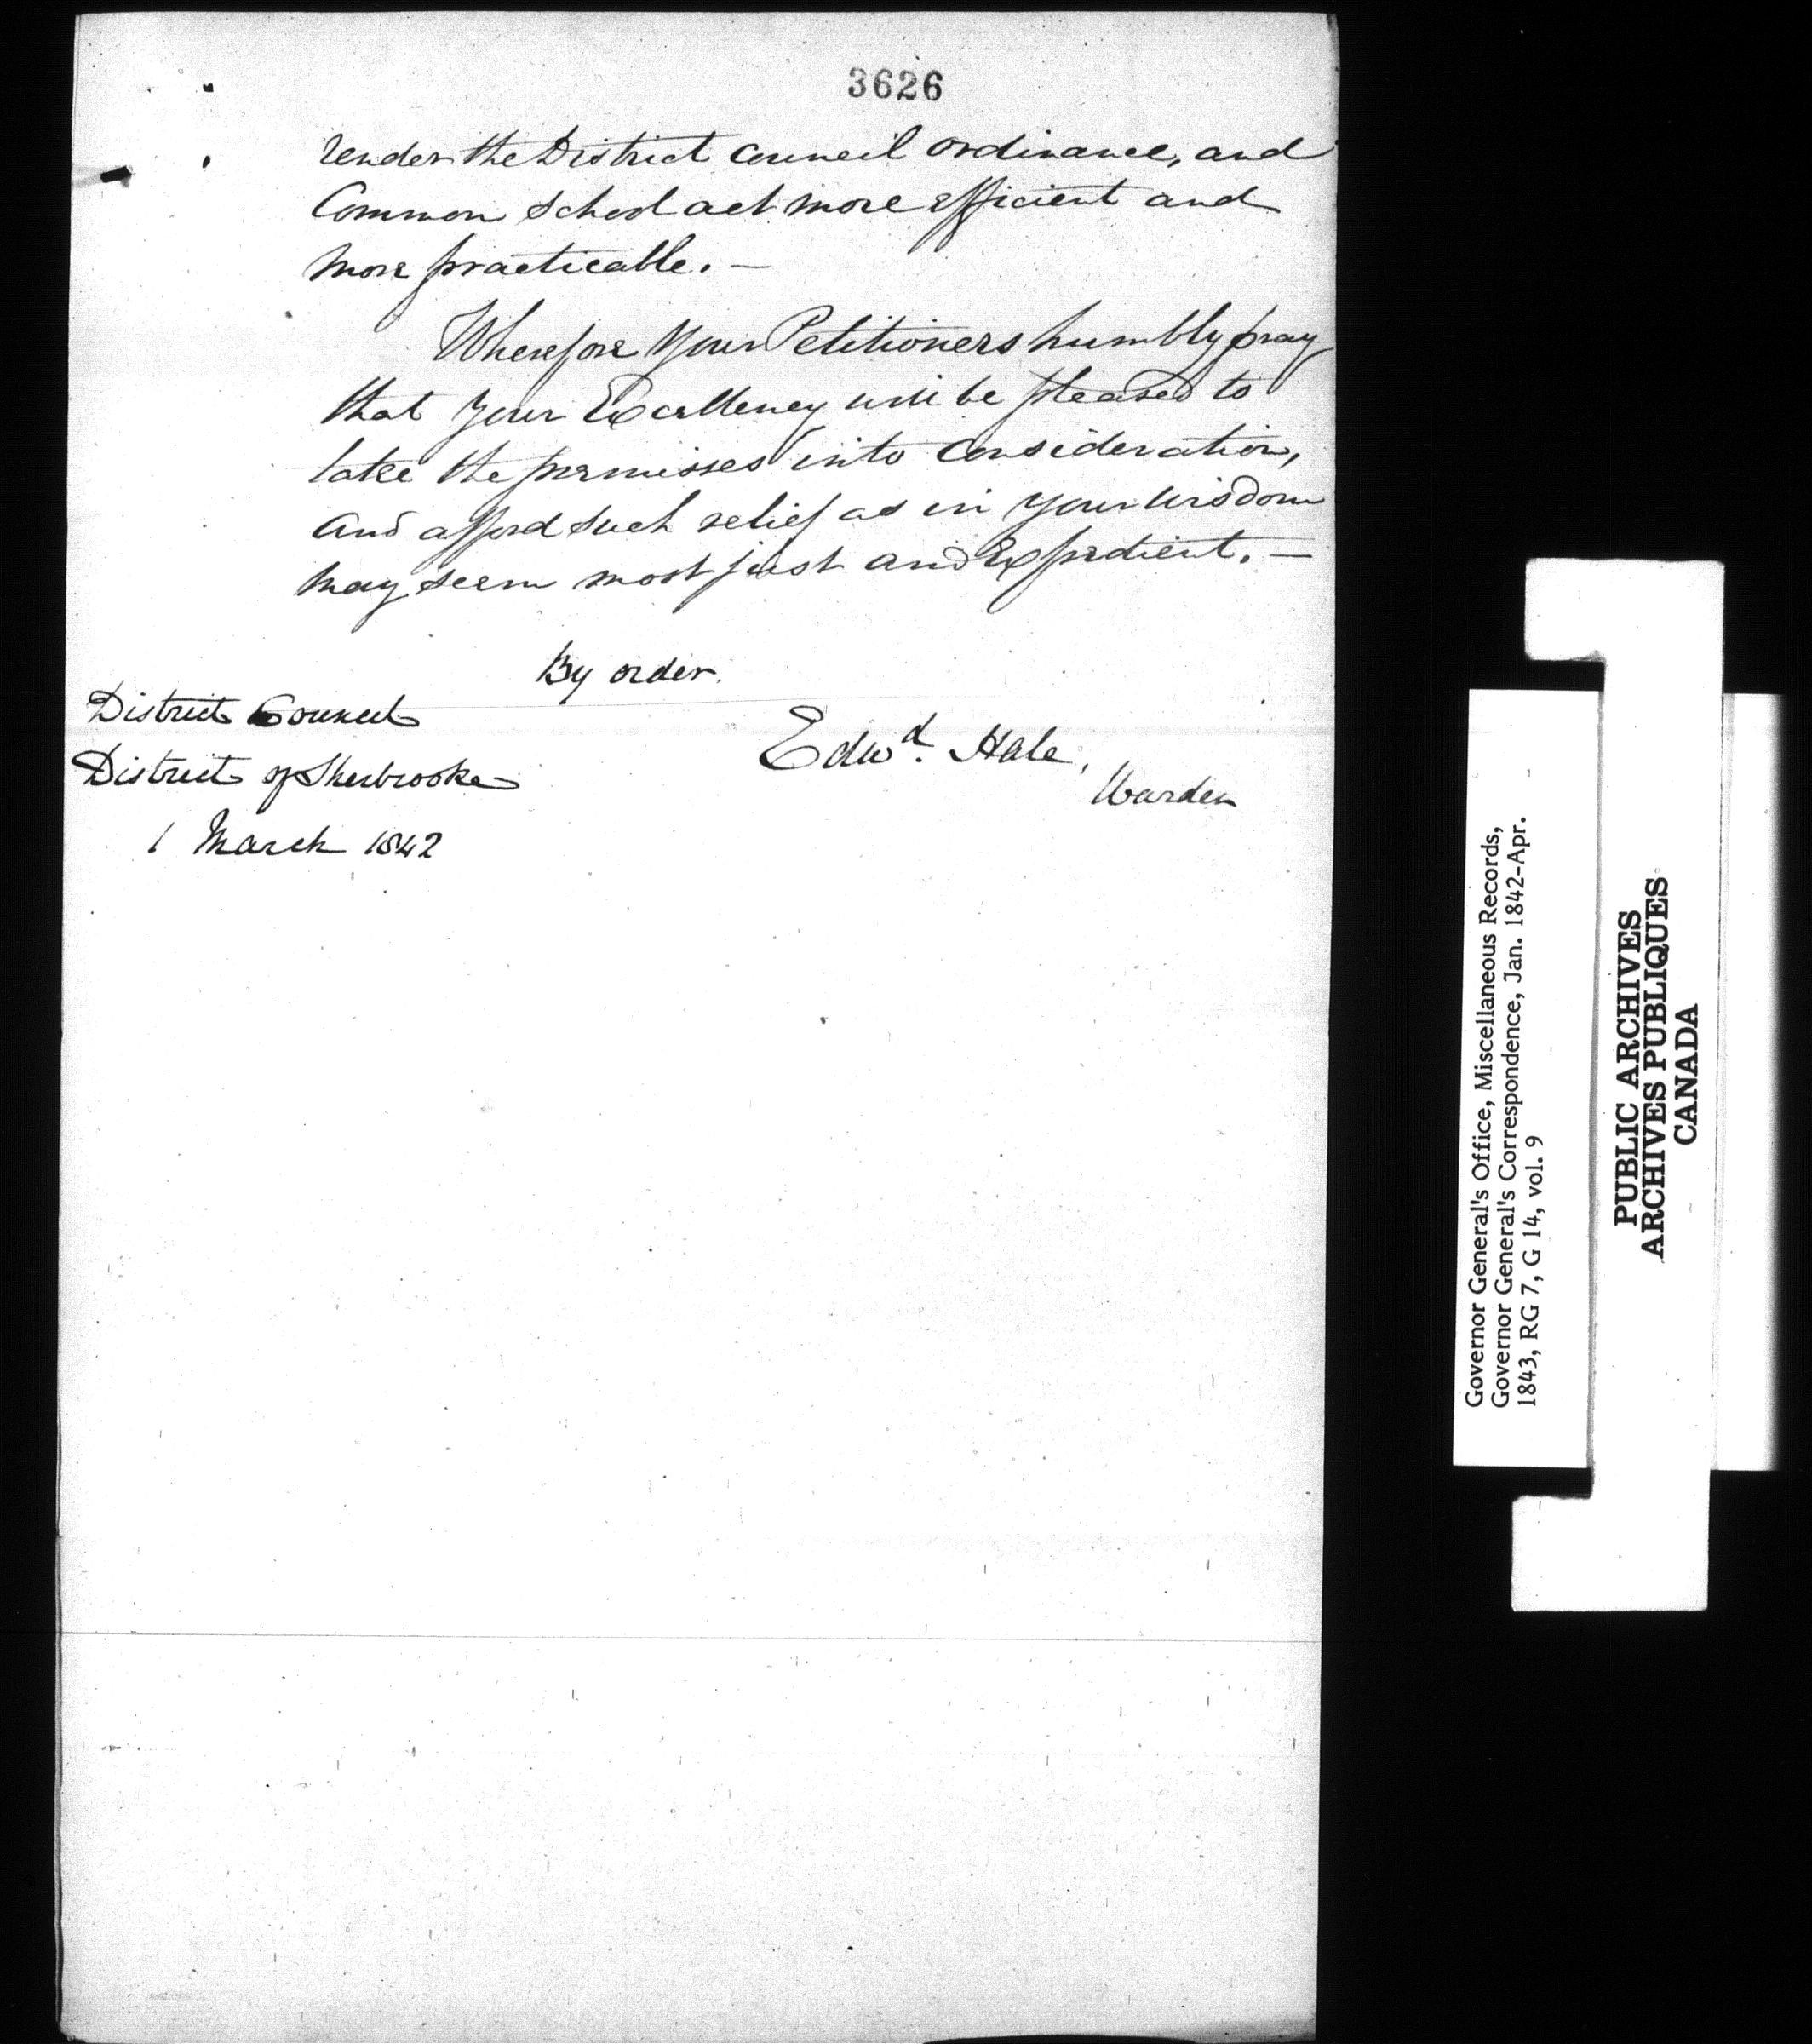 3626
under the District Council Ordinance, and
Common School act more efficient and
more practicable. —
Wherefore Your Petitioners humbly pray
that Your Excellency will be pleased to
take the premisses into Consideration,
and afford such relief as in Your Wisdom
may seem most just and Expedient. —
By order.
District Council
District of Sherbrooke
1 March 1842
Edwd. Hale,
Warden
Governor General's Office, Miscellaneous Records,
Governor General's Correspondence, Jan. 1842-Apr.
1843, RG 7, G 14, vol. 9
PUBLIC ARCHIVES
ARCHIVES PUBLIQUES
CANADA